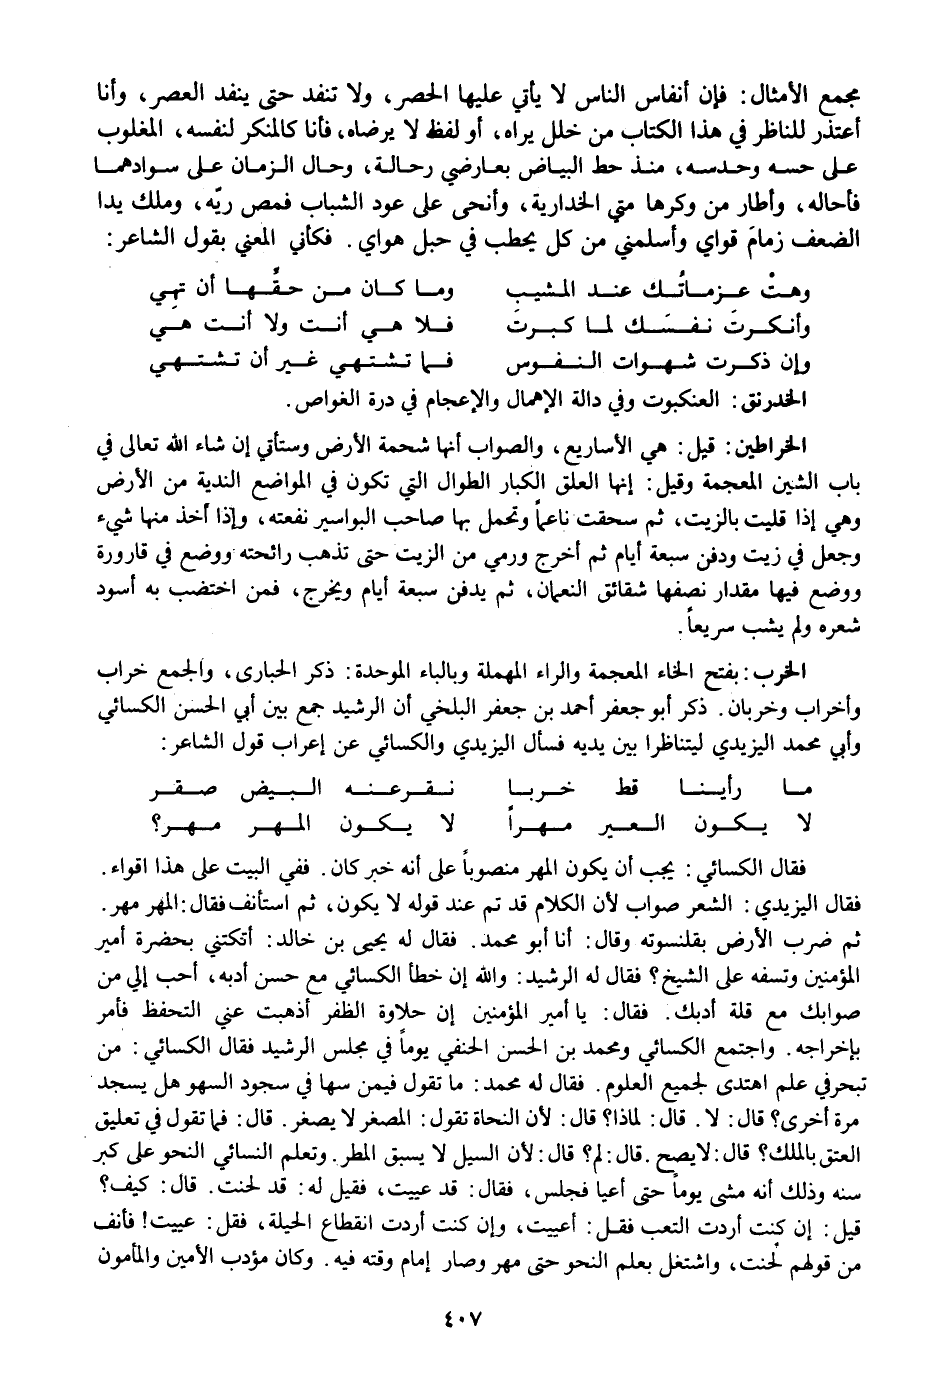 مجمع الأمثال: فإن أنفاس الناس لا يأتي عليها الحصر، ولا تنفد حتى ينفد العصر، وأنا
أعتذر للناظر في هذا الكتاب من خلل يراه، أو لفظ لا يرضاه، فأنا كالمنكر لنفسه، المغلوب
على حسه وحدسه، منذ حط البياض بعارضي رحالة، وحال الزمان على سوادهما
فأحاله، وأطار من وكرها مني الخدارية، وأنحى على عود الشباب فمص ريّه، وملك يدا
الضعف زمامَ قواي وأسلمني من كل يحطب في حبل هواي. فكأني المعني بقول الشاعر:
وهتْ عزماتُك عند المشيب وما كان من حقُّها أن تهي
وأنكرتَ نفسَك لما كبرتَ فلا هي أنت ولا أنت هي
وإن ذكرت شهوات النفوس فما تشتهي غير أن تشتهي
الخدرنق: العنكبوت وفي دالة الإهمال والإعجام في درة الغواص.
الخراطين: قيل: هي الأساريع، والصواب أنها شحمة الأرض وستأتي إن شاء الله تعالى في
باب الشين المعجمة وقيل: إنها العلق الكبار الطوال التي تكون في المواضع الندية من الأرض
وهي إذا قليت بالزيت، ثم سحقت ناعماً وتحمل بها صاحب البواسير نفعته، وإذا أخذ منها شيء
وجعل في زيت ودفن سبعة أيام ثم أخرج ورمي من الزيت حتى تذهب رائحته ووضع في قارورة
ووضع فيها مقدار نصفها شقائق النعمان، ثم يدفن سبعة أيام ويخرج، فمن اختضب به أسود
شعره ولم يشب سريعاً.
الخرب: بفتح الخاء المعجمة والراء المهملة وبالباء الموحدة: ذكر الحبارى، والجمع خراب
وأخراب وخربان. ذكر أبو جعفر أحمد بن جعفر البلخي أن الرشيد جمع بين أبي الحسن الكسائي
وأبي محمد اليزيدي ليتناظرا بين يديه فسأل اليزيدي والكسائي عن إعراب قول الشاعر:
ما رأينا قط خربا نقرعنه البيض صقر
لا يكون العير مهراً لا يكون المهر مهر؟
فقال الكسائي: يجب أن يكون المهر منصوباً على أنه خبر كان. ففي البيت على هذا اقواء.
فقال اليزيدي: الشعر صواب لأن الكلام قد تم عند قوله لا يكون، ثم استأنف فقال: المهر مهر.
ثم ضرب الأرض بقلنسوته وقال: أنا أبو محمد. فقال له يحيى بن خالد: أتكتني بحضرة أمير
المؤمنين وتسفه على الشيخ؟ فقال له الرشيد: والله إن خطأ الكسائي مع حسن أدبه، أحب إلي من
صوابك مع قلة أدبك. فقال: يا أمير المؤمنين إن حلاوة الظفر أذهبت عني التحفظ فأمر
بإخراجه. واجتمع الكسائي ومحمد بن الحسن الحنفي يوماً في مجلس الرشيد فقال الكسائي: من
تبحر في علم اهتدى لجميع العلوم. فقال له محمد: ما تقول فيمن سها في سجود السهو هل يسجد
مرة أخرى؟ قال: لا. قال: لماذا؟ قال: لأن النحاة تقول: المصغر لا يصغر. قال: فما تقول في تعليق
العتق بالملك؟ قال: لا يصح. قال: لم؟ قال: لأن السيل لا يسبق المطر. وتعلم النسائي النحو على كبر
سنه وذلك أنه مشى يوماً حتى أعيا فجلس، فقال: قد عييت، فقيل له: قد لحنت. قال: كيف؟
قيل: إن كنت أردت التعب فقل: أعييت، وإن كنت أردت انقطاع الحيلة، فقل: عييت! فأنف
من قولهم لحنت، واشتغل بعلم النحو حتى مهر وصار إمام وقته فيه. وكان مؤدب الأمين والمأمون
٤٠٧